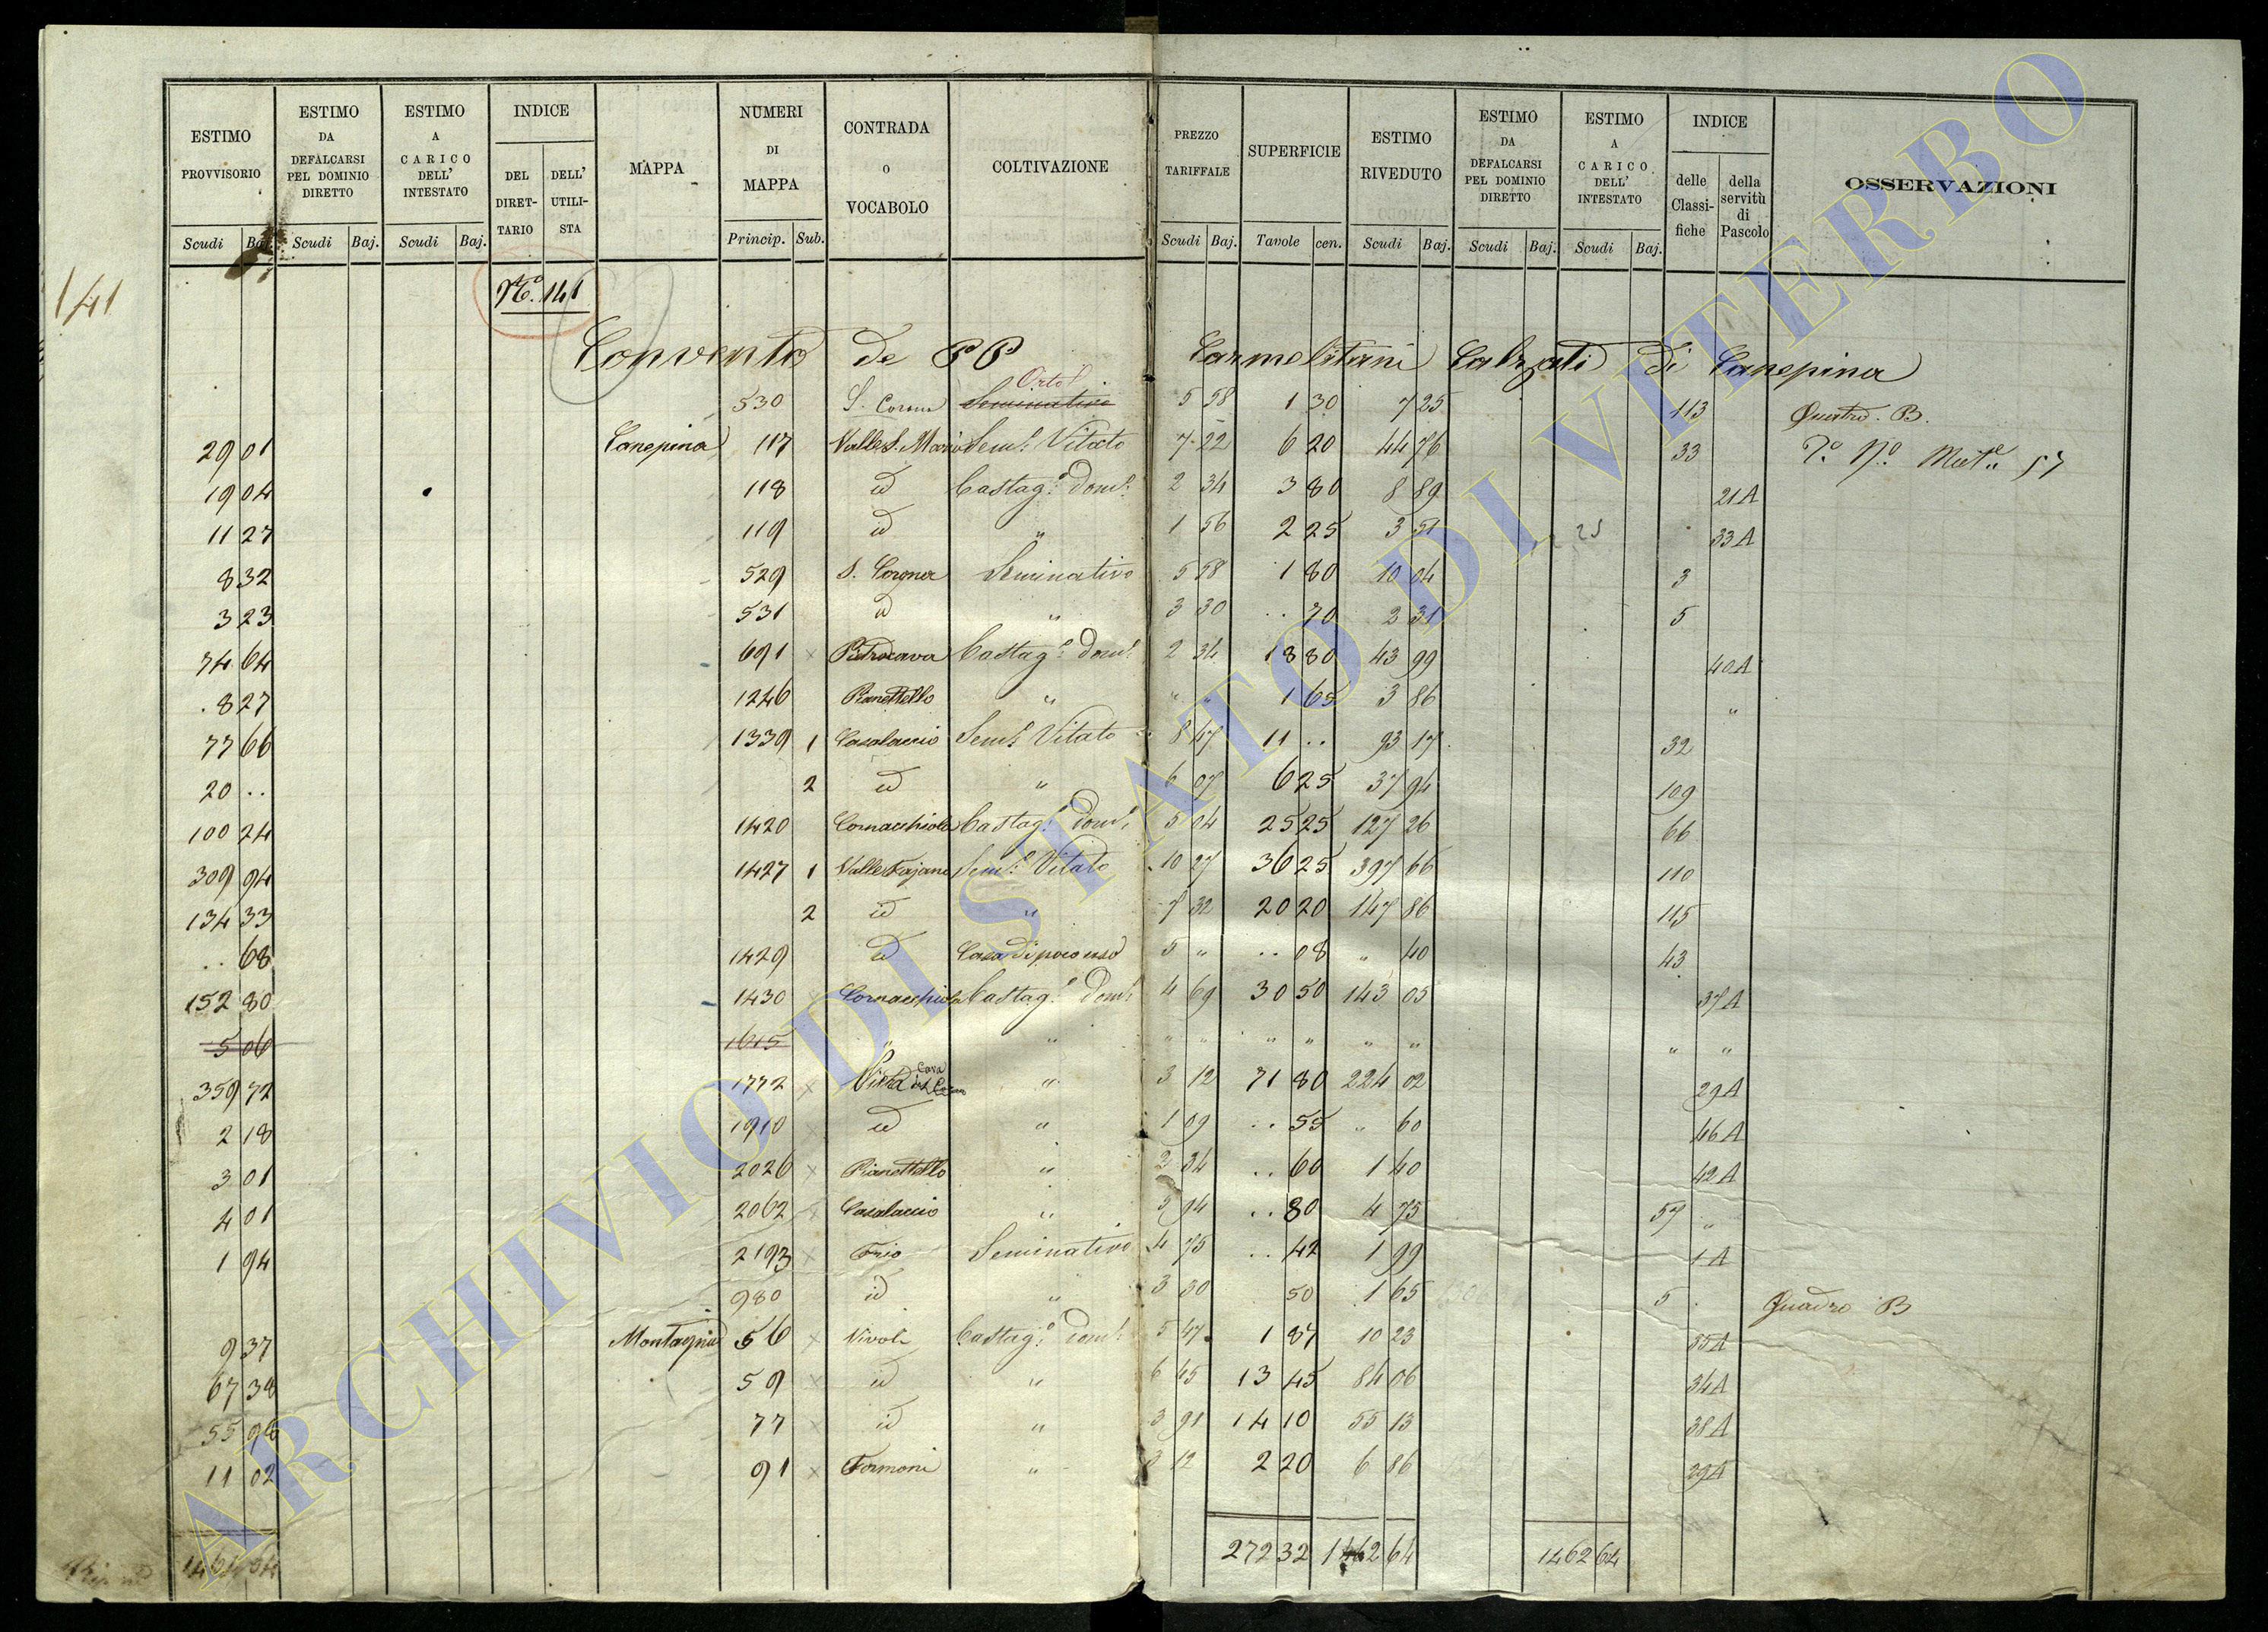 ESTIMO PROVVISORIO Scudi Baj.
ESTIMO DA DEFALCARSI PEL DOMINIO DIRETTO Scudi Baj.
ESTIMO A CARICO DELL' INTESTATO Scudi Baj.
INDICE DEL DIRETTARIO DELL' UTILISTA
MAPPA
NUMERI DI MAPPA Princip. Sub.
CONTRADA o VOCABOLO
COLTIVAZIONE
PREZZO TARIFFALE Scudi Baj.
SUPERFICIE Tavole cen.
ESTIMO RIVEDUTO Scudi Baj.
ESTIMO DA DEFALCARSI PEL DOMINIO DIRETTO Scudi Baj.
ESTIMO A CARICO DELL' INTESTATO Scudi Baj.
INDICE delle Classifiche della servitù di Pascolo
OSSERVAZIONI
141
No. 141
Convento de PP Carmelitani Calzati di Canepina
530 S. Corona Seminativo Orto 5 58 1 30 7 25 113 Quadro. B.
29 01 Canepina 117 Valle S. Maria Semo Vitato 7 22 6 20 44 76 33 57
19 04 118 id Castago domo 2 34 3 80 8 89 21A
11 27 119 id " 1 56 2 25 3 51 25 33A
8 32 529 S. Corona Seminativo 5 58 1 80 10 04 3
3 23 531 id " 3 30 .. 70 2 31 5
74 64 691 x Petrocava Castago domo 2 34 18 80 43 99 40A
8 27 1246 Pianettello " " " 1 65 3 86 "
77 66 1339 1 Casalaccio Semo Vitato 8 47 11 .. 93 17 32
20 .. 2 id " 6 07 6 25 37 94 109
100 24 1420 Cornacchiola Castago domo 5 04 25 25 127 26 66
309 94 1427 1 Valle Fajana Semo Vitato 10 97 36 25 397 66 110
134 33 2 id " 7 32 20 20 147 86 115
.. 68 1429 id Casa di poco uso 5 " .. 08 " 40 43
152 80 1430 Cornacchiola Castago domo 4 69 30 50 143 05 37A
5 06 1615 " " " " " " " " " "
359 72 1772 x " 3 12 71 80 224 02 29A
2 18 1910 x id " 1 09 .. 55 " 60 46A
3 01 2026 x Pianettello " 2 34 .. 60 1 40 42A
4 01 2062 x Casalaccio " 5 94 .. 80 4 75 57 "
1 94 2193 x Frio Seminativo 4 75 .. 42 1 99 1A
980 id " 3 30 50 1 65 5 Quadro B
9 37 Montagna 56 x Nivoli Castago domo 5 47 1 87 10 23 35A
67 38 59 x id " 6 25 13 45 84 06 34A
55 98 77 x id " 3 91 14 10 55 13 38A
11 02 91 x Formoni " 3 12 2 20 6 86 29A
272 32 1462 64 1462 64
ARCHIVIO DI STATO DI VITERBO